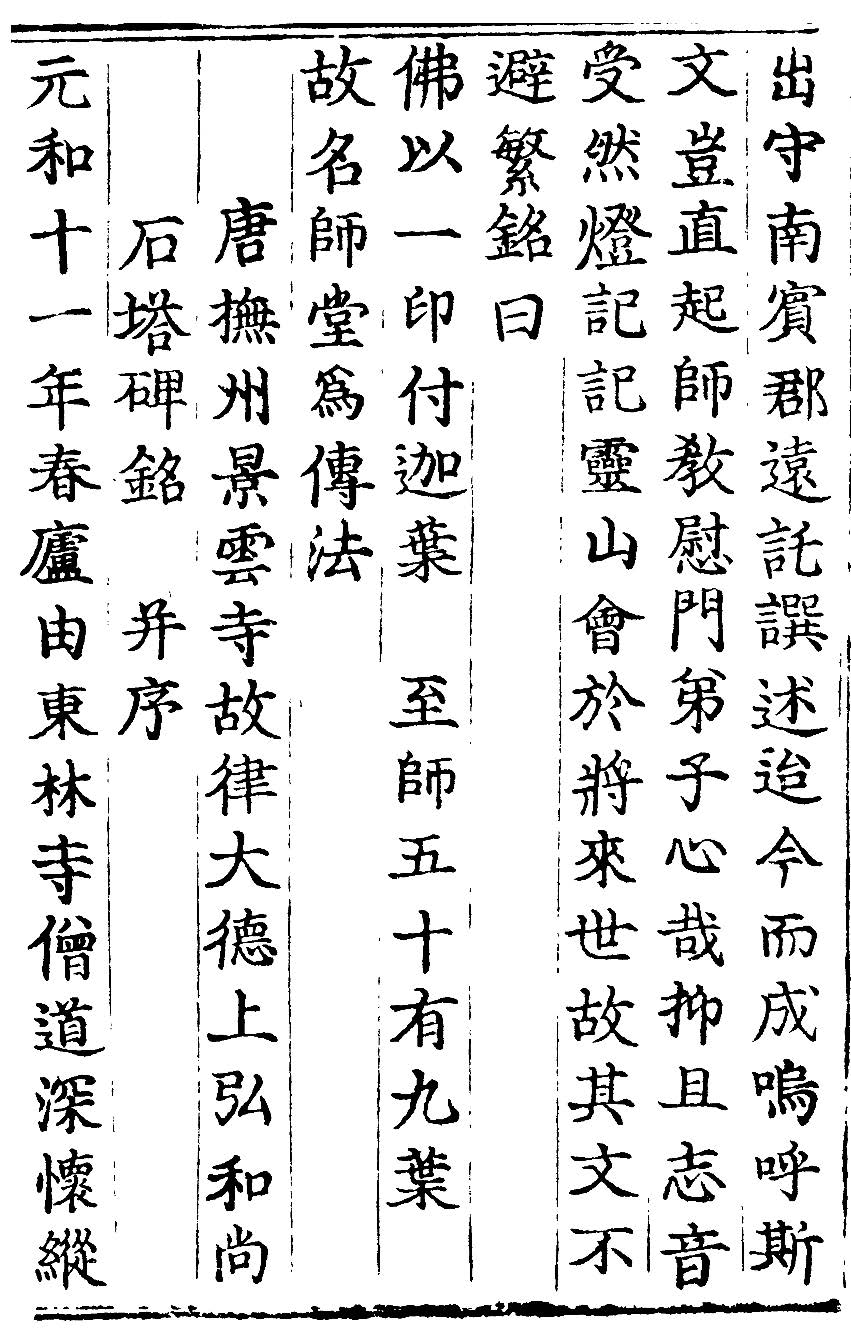 出守南賓郡遠託譔述迨今而成嗚呼斯
文豈直起師教慰門弟子心哉抑且志音
受然燈記記靈山會於將來世故其文不
避繁銘曰
佛以一印付迦葉　至師五十有九葉
故名師堂爲傳法
唐撫州景雲寺故律大德上弘和尚
石塔碑銘　并序
元和十一年春廬由東林寺僧道深懷縱